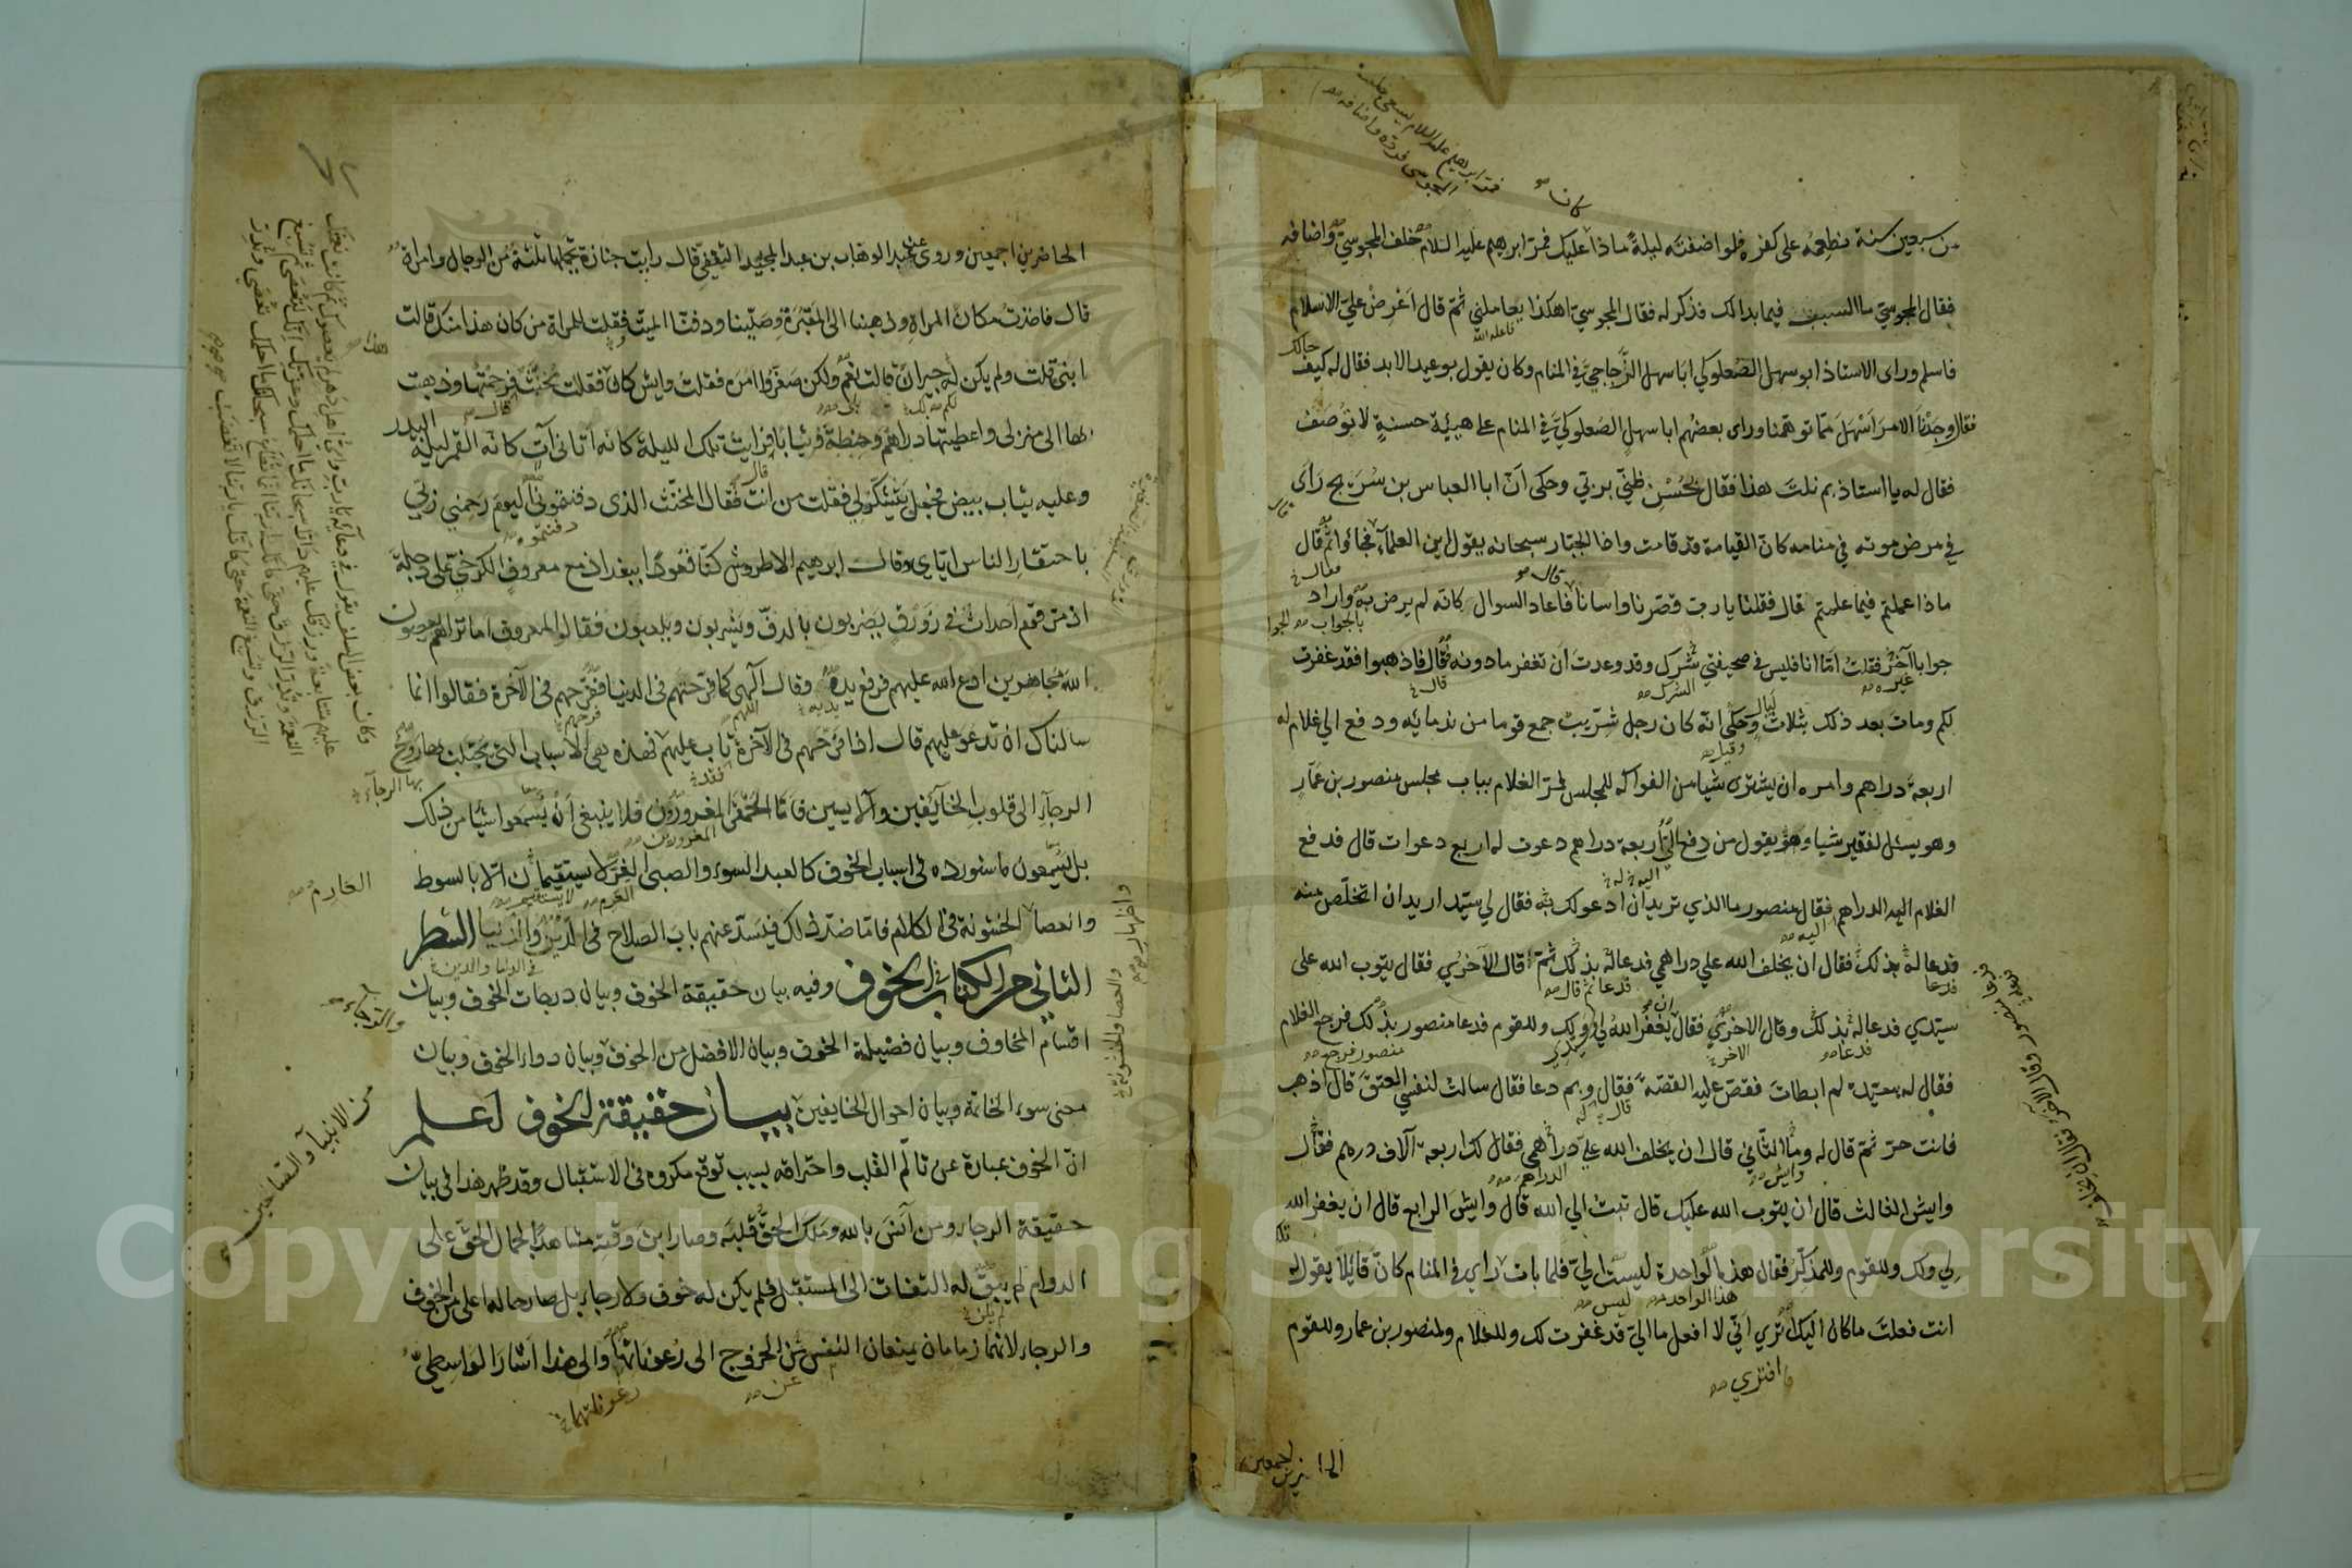 من سبعين سنة نطعمه على كفره فلو اضفته ليلة ماذا عليك فمر ابرهيم عليه السلام خلف المجوسي واضافه
فقال المجوسي ما السبب فيما بدا لك فذكر له فقال المجوسي اهكذا يعاملني ثم قال اعرض علي الاسلام
فاسلم وراى الاستاذ ابو سهل الصعلوكي ابا سهل الزجاجي في المنام وكان يقول بوعيد الابد فقال له كيف
حالك
فقال وجدنا الامر اسهل مما توهمنا وراى بعضهم ابا سهل الصعلوكي في المنام على هيئة حسنة لا توصف
فقال له يا استاذ بم نلت هذا فقال بحسن ظني بربي وحكى ان ابا العباس بن سريج راى
في مرض موته في منامه كان القيامة قد قامت واذا الجبار سبحانه يقول اين العلماء فجاؤا ثم قال
ماذا عملتم فيما علمتم قال فقلنا يا رب قصرنا واسانا فاعاد السوال كانه لم يرض به واراد
جوابا آخر فقلت اما انا فليس في صحيفتي شرك وقد وعدت ان تغفر ما دونه فقال فاذهبوا فقد غفرت
لكم ومات بعد ذلك بثلاث ليال وحكى انه كان رجل شريب جمع قوما من ندمائه ودفع الي غلام له
اربعة دراهم وامره ان يشتري شيا من الفواكه للمجلس فمر الغلام بباب مجلس منصور بن عمار
وهو يسئل لفقير شيا وهو يقول من دفع الي اربعة دراهم دعوت له اربع دعوات قال فدفع
الغلام اليه الدراهم فقال منصور ما الذي تريد ان ادعو لك به فقال لي سيد اريد ان اتخلص منه
فدعا له بذلك فقال ان يخلف الله علي دراهمي فدعا له بذلك ثم قال الآخري فقال يتوب الله على
سيدي فدعا له بذلك وقال الاخري فقال يغفر الله لي ولك وللقوم فدعا منصور بذلك فرجع الغلام
فقال له سيده لم ابطات فقص عليه القصة فقال وبم دعا فقال سالت لنفسي العتق قال اذهب
فانت حر ثم قال له وما الثاني قال ان يخلف الله علي دراهمي فقال لك اربعة آلاف درهم فقال
وايش الثالث قال ان يتوب الله عليك قال تبت الي الله قال وايش الرابع قال ان يغفر الله
لي ولك وللقوم وللمذكر فقال هذه الواحدة ليست الي فلما بات راى في المنام كان قائلا يقول له
انت فعلت ما كان اليك اترى اني لا افعل ما الي قد غفرت لك وللغلام ولمنصور بن عمار وللقوم
افترى
الحاضرين اجمعين
الحاضرين اجمعين وروى عن عبد الوهاب بن عبد المجيد الثقفي قال رايت جنازة تحملها ثلثة من الرجال وامراة
قال فاخذت مكان المراة وذهبنا الى المقبرة وصلينا ودفنا الميت فقلت للمراة من كان هذا منك قالت
ابني قلت ولم يكن له جيران قالت نعم ولكن صغروا امره فقلت وايش كان فقالت مخنث فرحمتها وذهبت
بها الى منزلي واعطيتها دراهم وحنطة وثيابا فرايت تلك الليلة كانه اتاني آت كانه القمر ليلة
البدر
وعليه ثياب بيض فجعل يتشكر لي فقلت من انت فقال المخنث الذي دفنتموني اليوم رحمني ربي
باحتقار الناس اياي وقال ابرهيم الاطروش كنا قعودا ببغداذ مع معروف الكرخي على دجلة
اذ مر قوم احداث في زورق يضربون بالدف ويشربون ويلعبون فقالوا لمعروف اما تراهم يعصون
الله مجاهرين ادع الله عليهم فرفع يده وقال الهي كما فرحتهم في الدنيا ففرحهم في الآخرة فقالوا انما
سالناك ان تدعو عليهم قال اذا فرحهم في الآخرة تاب عليهم فهذه هي الاسباب التي يجتلب بها روح
الرجاء الى قلوب الخائفين والآيسين فاما الحمقى المغرورون فلا ينبغي ان يسمعوا شيئا من ذلك
بل يسمعون ما سنورده في اسباب الخوف كالعبد السوء والصبي الغر لا يستقيمان الا بالسوط
والعصا الخشونة في الكلام فاما ضد ذلك فيسد عنهم باب الصلاح في الدين والدنيا الشطر
الثاني من الكتاب في الخوف وفيه بيان حقيقة الخوف وبيان درجات الخوف وبيان
اقسام المخاوف وبيان فضيلة الخوف وبيان الافضل من الخوف وبيان دواء الخوف وبيان
معنى سوء الخاتمة وبيان احوال الخايفين بيان حقيقة الخوف اعلم
ان الخوف عبارة عن تالم القلب واحتراقه بسبب توقع مكروه في الاستقبال وقد ظهر هذا في بيان
حقيقة الرجاء ومن آنس بالله وملك الحق قلبه وصار ابن وقته مشاهدا لجمال الحق على
الدوام لم يبق له التفات الى المستقبل فلم يكن له خوف ولا رجاء بل صار حاله اعلى من الخوف
والرجاء لانهما زمامان يمنعان النفس من الخروج الى رعوناتها والى هذا اشار الواسطي
من الانبياء والصالحين
Copyright © King Saud University